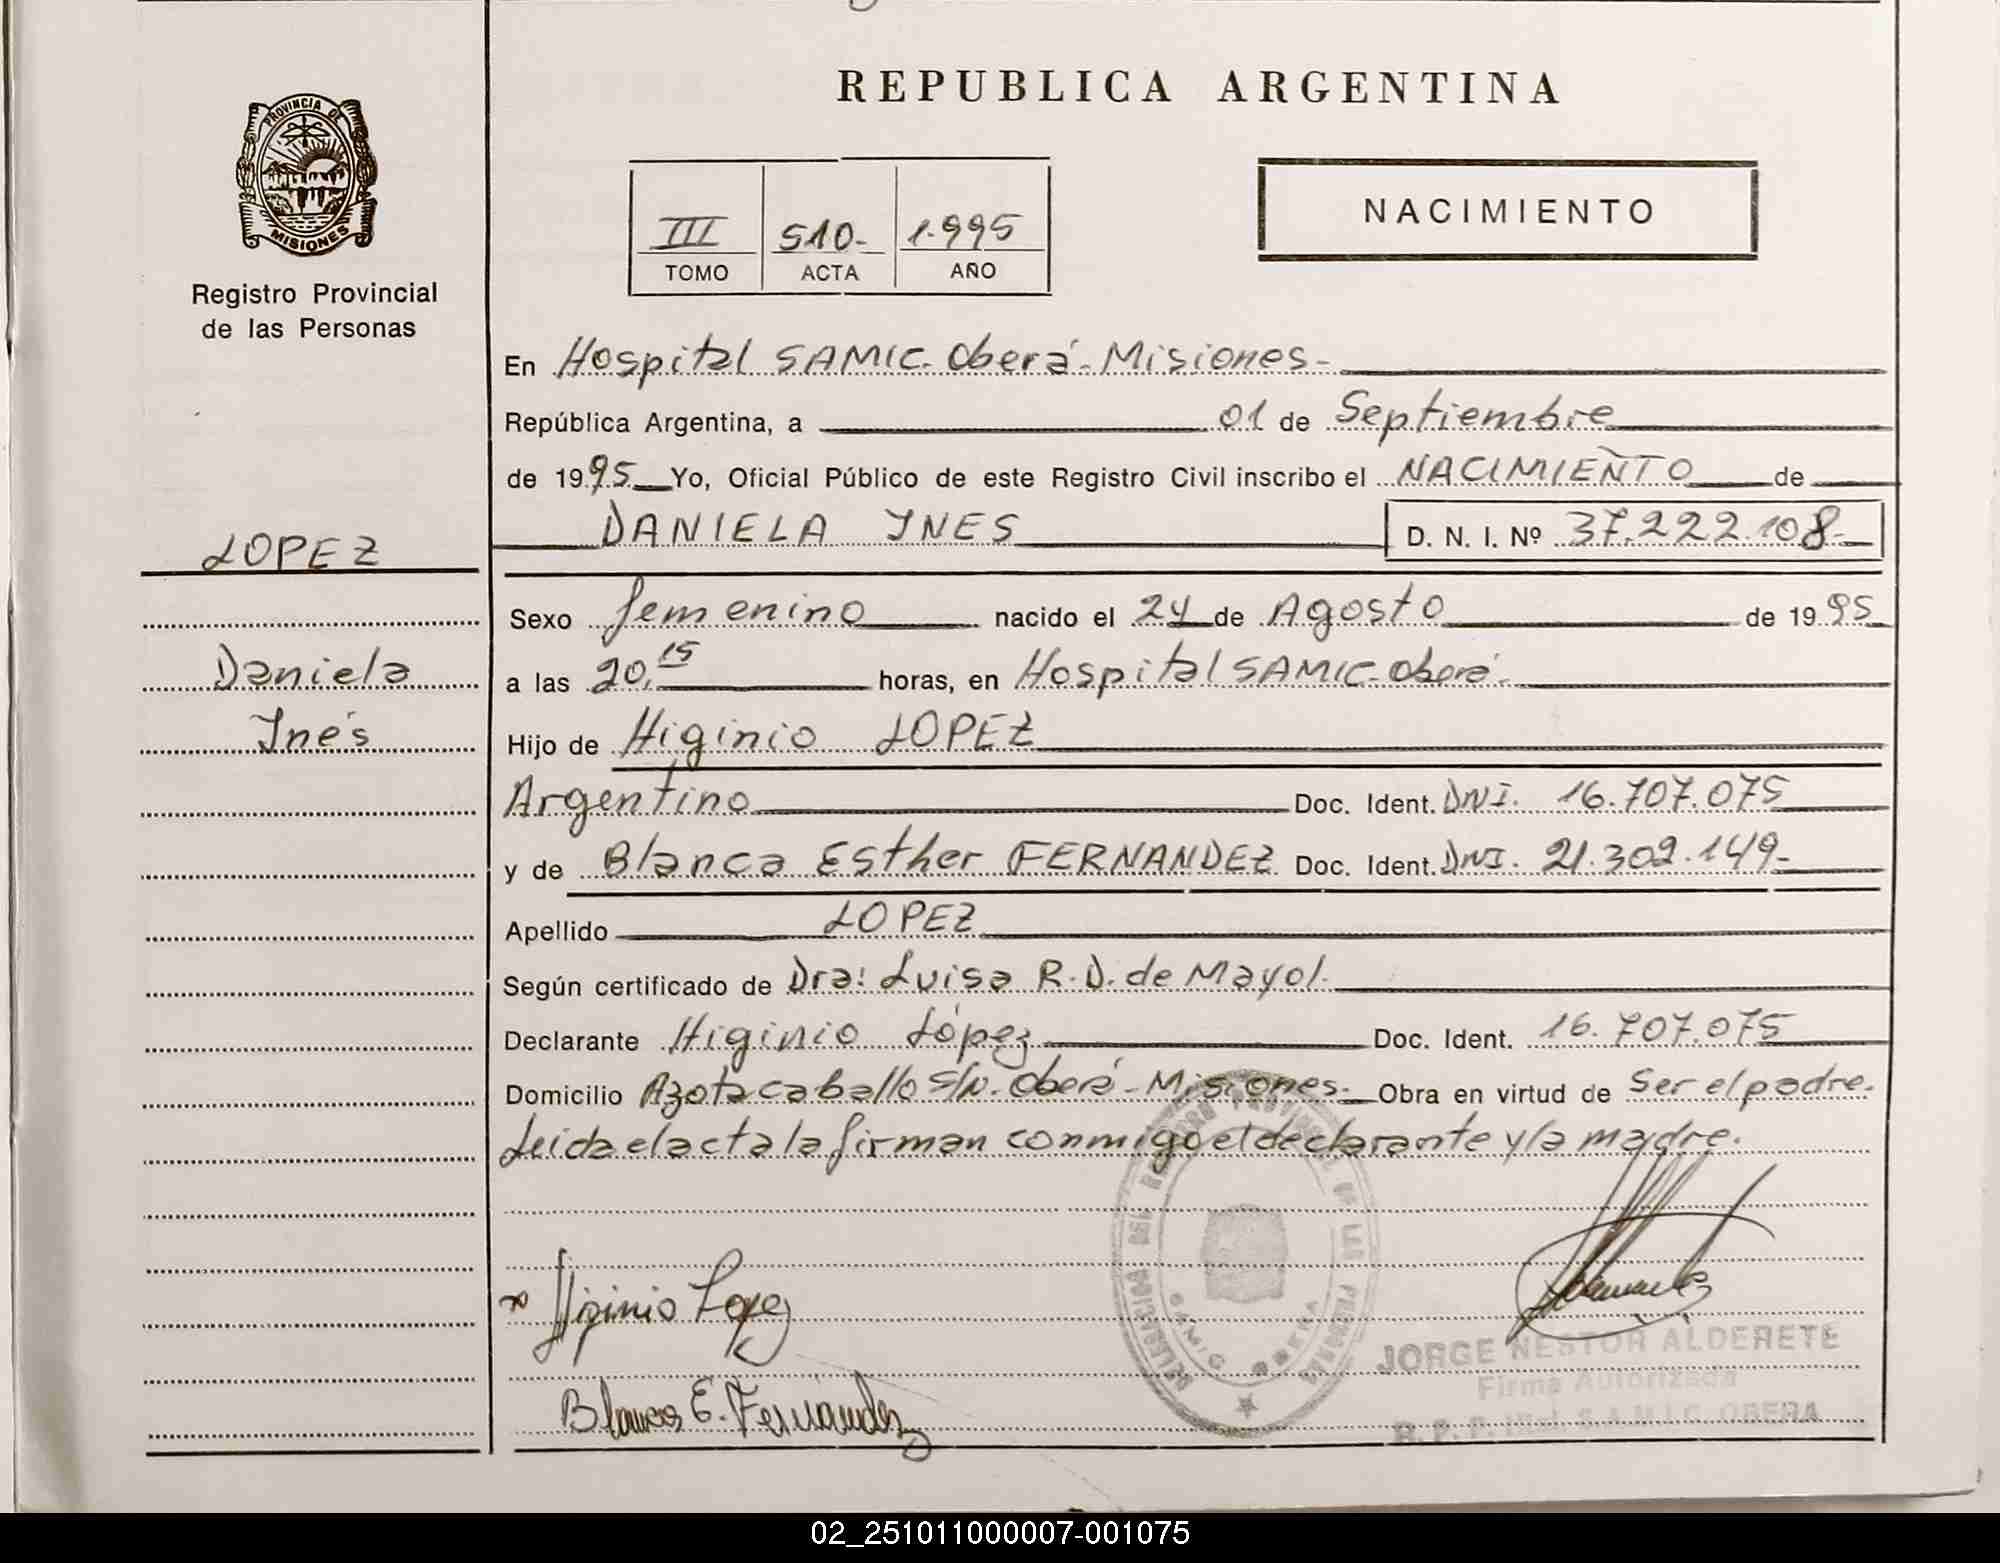 REPUBLICA ARGENTINA
PROVINCIA DE
MISIONES
Registro Provincial
de las Personas
III 510- 1.995
TOMO ACTA AÑO
NACIMIENTO
En Hospital SAMIC. Oberá. Misiones-
República Argentina, a 01 de Septiembre
de 1995 Yo, Oficial Público de este Registro Civil inscribo el NACIMIENTO de
DANIELA YNES D. N. I. Nº 37.222.108-
LOPEZ
Daniela
Ynés
Sexo femenino nacido el 24 de Agosto de 1995
a las 20,15 horas, en Hospital SAMIC-Oberá-
Hijo de Higinio LOPEZ
Argentino Doc. Ident. DNI. 16.707.075
y de Blanca Esther FERNANDEZ Doc. Ident. DNI. 21.302.149-
Apellido LOPEZ
Según certificado de Dra: Luisa R. D. de Mayol.
Declarante Higinio López Doc. Ident. 16.707.075
Domicilio Azotacaballo S/N. Oberá-Misiones- Obra en virtud de Ser el padre.
Leida el acta la firman conmigo el declarante y la madre.
Higinio Lopez
DELEGACION DEL REGISTRO PROVINCIAL DE LAS PERSONAS
SAMIC OBERA
JORGE NESTOR ALDERETE
Firma Autorizada
R. P. P. S.A.M.I.C. OBERA
Blanca E. Fernández
02_251011000007-001075